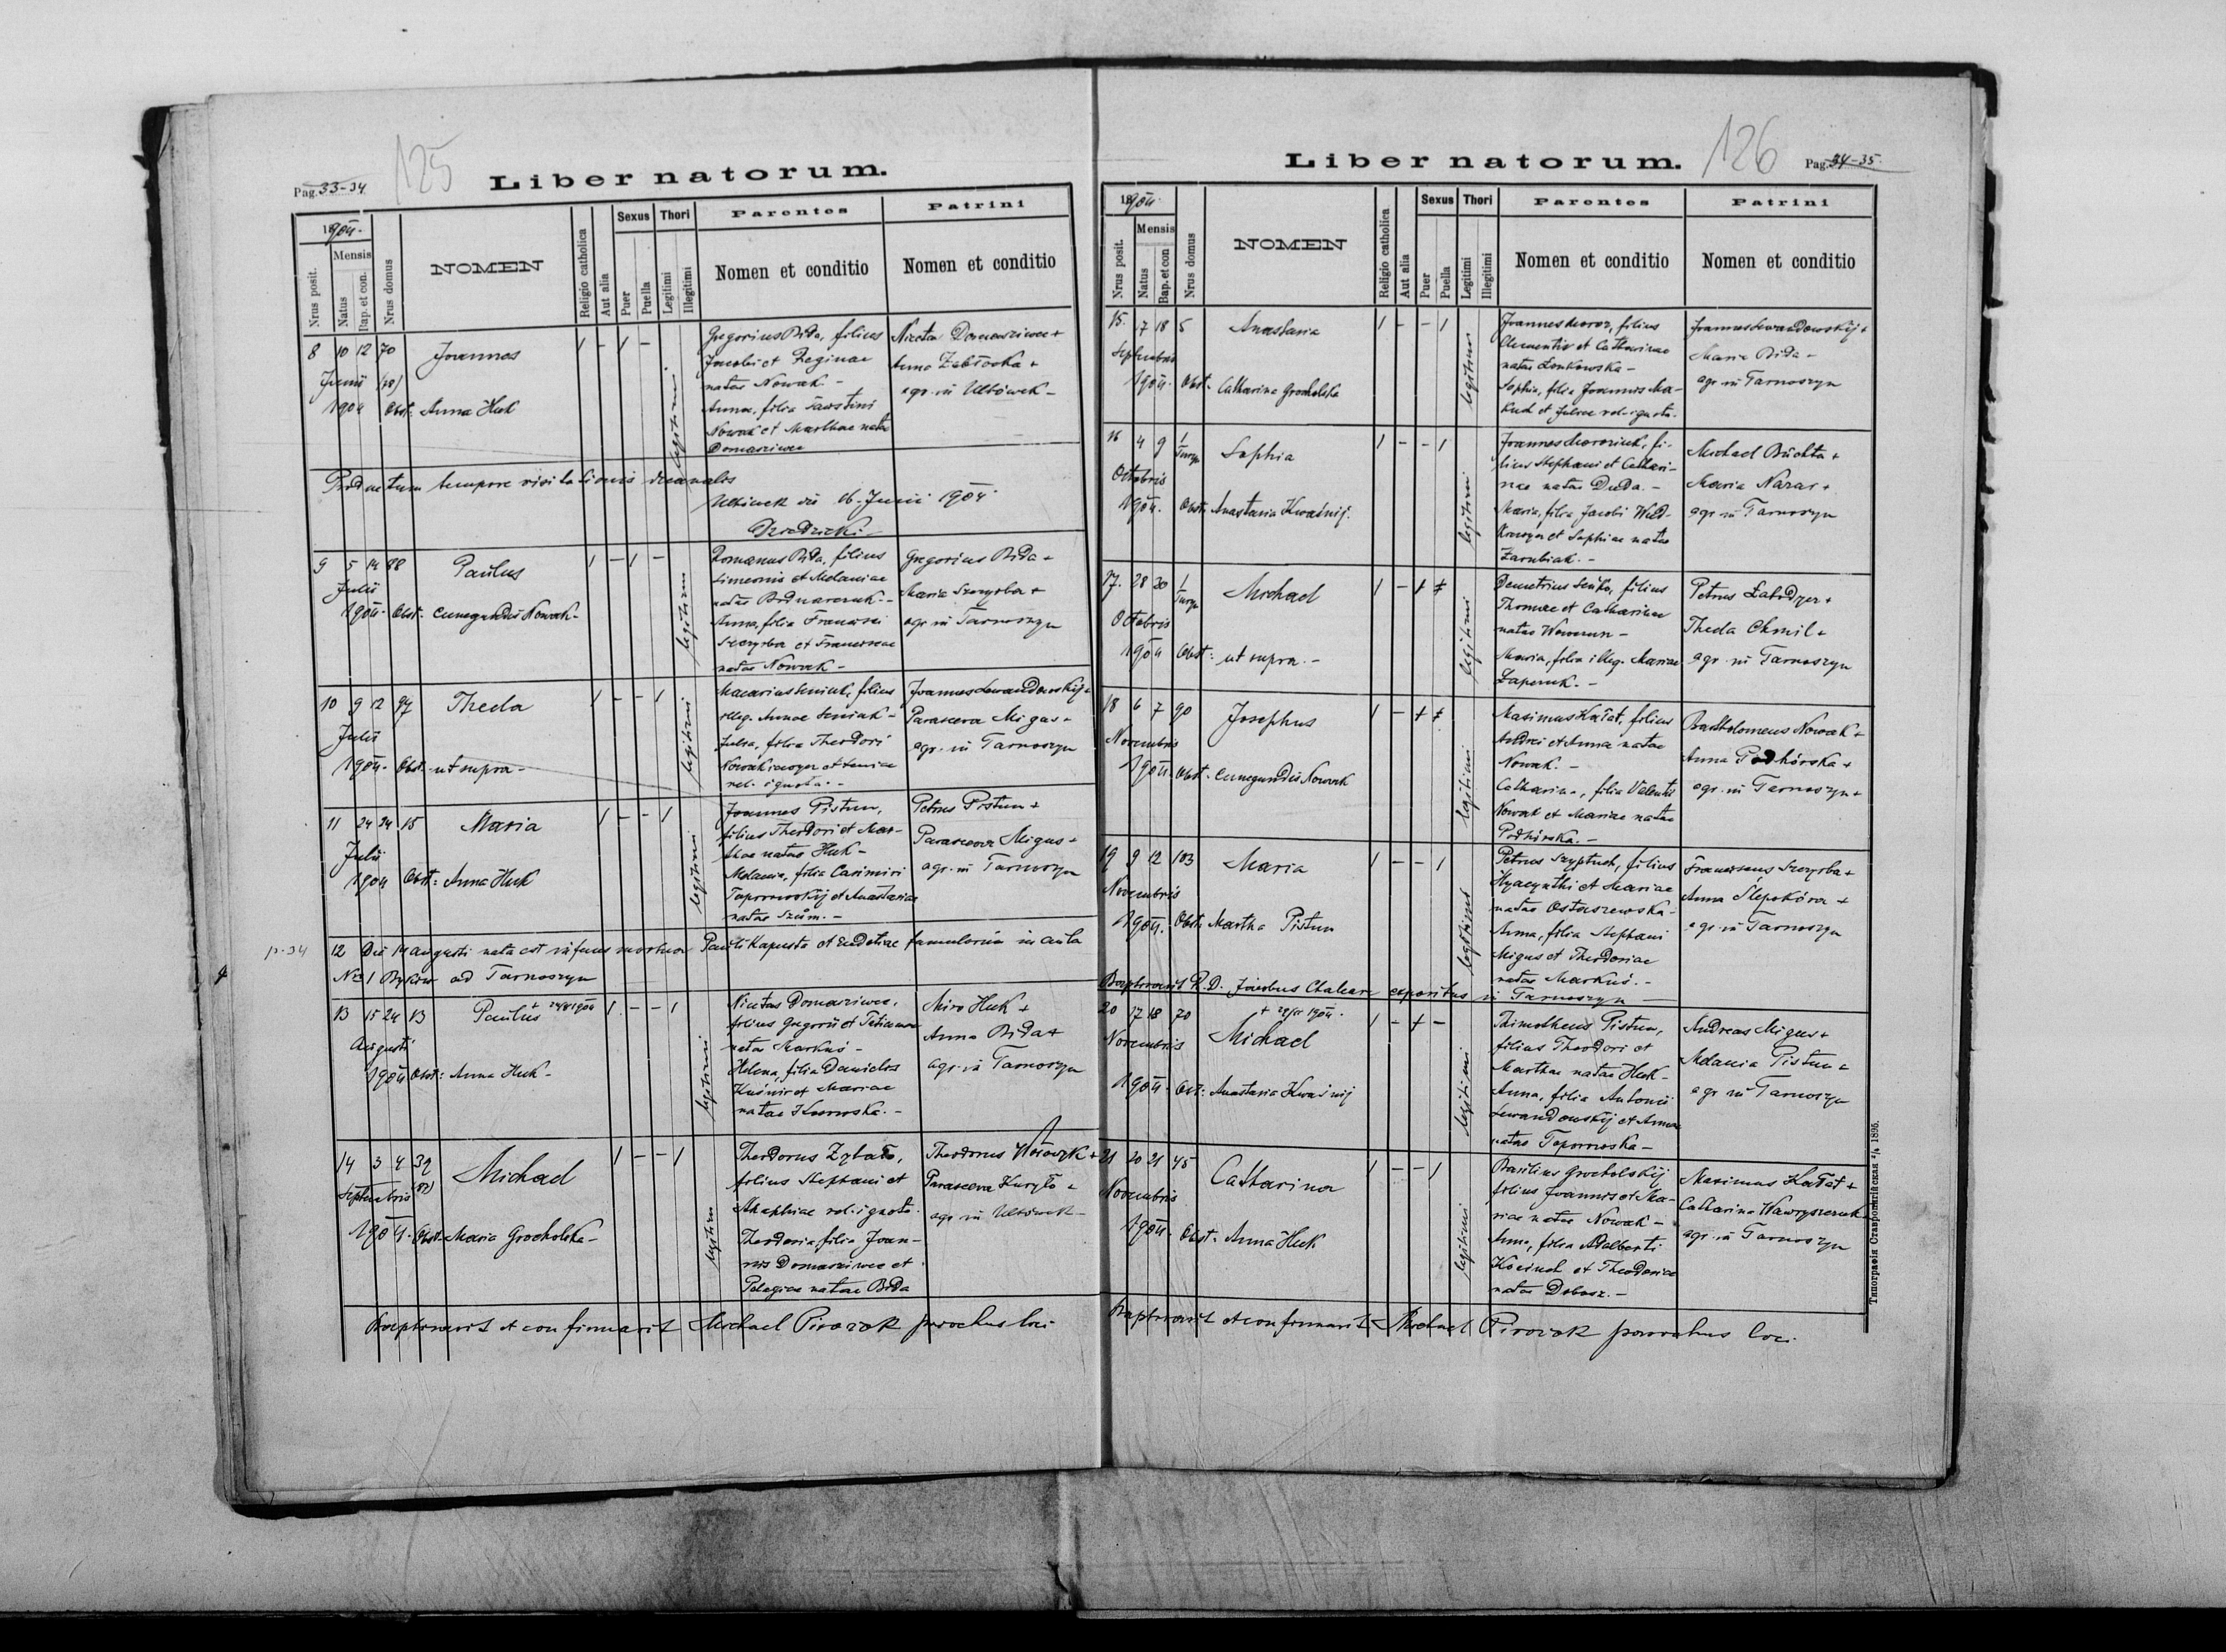 125
Pag. 33-34
Liber natorum.
1904.
Nrus posit.
Mensis
Natus
Bap. et con.
Nrus domus
NOMEN
Religio catholica
Aut alia
Sexus
Puer
Puella
Thori
Legitimi
Illegitimi
Parentes
Nomen et conditio
Patrini
Nomen et conditio
8 10 12 70 Joannes 1 - 1 -
Junii
1904 Obst. Anna Huk
legitimi
Gregorius Bida, filius
Jacobi et Reginae
natae Nowak -
Anna, filia Faustini
Nowak et Marthae natae
Domaziwec
Nicetas Domaziwec +
Anna +
agr. in Uhrówek -
Productum tempore visitationis decanalis
Uhrówek die 16. Junii 1904
9 5 14 88 Paulus 1 - 1 -
Julii
1904. Obst. Cunegundis Nowak -
legitimi
Romanus Bida, filius
Simeonis et Melaniae
natae Bodnarczuk -
Anna, filia Francisci
Szczyrba et Franciscae
natae Nowak -
Gregorius Bida +
Maria Szczyrba +
agr. in Tarnoszyn
10 9 12 94 Theda 1 - - 1
Julii
1904. Obst. ut supra -
legitimi
Macarius Seniuk, filius
illeg. Annae Seniuk -
Julia, filia Theodori
rel. ignota. -
Joannes Lewandowskij +
Parasceva Migus +
agr. in Tarnoszyn
11 24 24 15 Maria 1 - - 1
Julii
1904 Obst: Anna Huk
legitimi
Joannes Pistun,
filius Theodori et Mar-
thae natae Huk -
Melania, filia Casimiri
Toporowskij et Anastasiae
natae Szum. -
Petrus Pistun +
Parasceva Migus +
agr. in Tarnoszyn
p. 34
12 Die 14 augusti nata est infans mortua Pauli Kapusta et Eudociae famulorum in aula
Nr 1 Byków ad Tarnoszyn
13 15 24 13 Paulus 1 - - 1
Augusti
1904 Obst: Anna Huk -
legitimi
Nicetas Domaziwec,
filius Gregorii et Tatianae
natae Markus -
Helena, filia Danielis
Kuśnir et Mariae
natae
Miro Huk +
Anna Bida +
agr. in Tarnoszyn
14 3 4 32 Michael 1 - - 1
Septembris
1904. Obst. Maria Grocholska -
legitimi
Theodorus Zybała,
filius Stephani et
Agaphiae rel. ignota.
Theodosia, filia Joan-
nis Domaziwec et
Pelagiae natae Bida
Theodorus +
Parasceva Kuryło +
agr. in Uhrówek -
Baptisavit et confirmavit Michael Pirozok parochus loci
126
Pag. 34-35.
Liber natorum.
1904.
Nrus posit.
Mensis
Natus
Bap. et con
Nrus domus
NOMEN
Religio catholica
Aut alia
Sexus
Puer
Puella
Thori
Legitimi
Illegitimi
Parentes
Nomen et conditio
Patrini
Nomen et conditio
15. 17 18 5 Anastasia 1 - - 1
Septembris
1904. Obst. Catharina Grocholska
legitimi
Joannes Moroz, filius
Clementis et Catharinae
natae Lenkowska -
Sophia, filia Joannis Ma-
kuch et Juliae rel. ignota.
Joannes Lewandowskij +
Maria Bida -
agr. in Tarnoszyn
16 4 9 1 Sophia 1 - - 1
Octobris
1904. Obst. Anastasia Kwaśnij.
legitimi
Joannes Moroziuk, fi-
lius Stephani et Cathari-
nae natae Duda. -
Maria, filia Jacobi
et Sophiae natae
Zarubiak. -
Michael Buchta +
Maria Nazar +
agr. in Tarnoszyn
17. 28 30 1 Michael 1 -
Octobris
1904 Obst: ut supra. -
legitimi
Demetrius Senko, filius
Thomae et Catharinae
natae Woworun -
Maria, filia illeg. Mariae
Łapczuk. -
Petrus Łabodzer +
Theda Chmil +
agr. in Tarnoszyn
18 6 7 90 Josephus 1 -
Novembris
1904. Obst. Cunegundis Nowak
legitimi
Maximus Kałat, filius
Andrei et Annae natae
Nowak. -
Catharina, filia Valentii
Nowak et Mariae natae
Podhórska. -
Bartholomeus Nowak +
Anna Podhórska +
agr. in Tarnoszyn +
19 9 12 103 Maria 1 - - 1
Novembris
1904. Obst. Martha Pistun
legitimi
Petrus Szyptuch, filius
Hyacynthi et Mariae
natae Ostaszewska -
Anna, filia Stephani
Migus et Theodosiae
natae Markus. -
Franciscus Szczyrba +
Anna Ślepokóra +
agr. in Tarnoszyn
Baptisavit R. D. Jacobus Chalcarz expositus in Tarnoszyn
20 17 18 70 Michael 1 - + -
Novembris
1904. Obst: Anastasia Kwaśnij
legitimi
Thimotheus Pistun,
filius Theodori et
Marthae natae Huk -
Anna, filia Antonii
Lewandowskij et Annae
natae Toporowska -
Andreas Migus +
Melania Pistun +
agr. in Tarnoszyn
21 20 21 45 Catharina 1 - - 1
Novembris
1904. Obst. Anna Huk
legitimi
Basilius Grocholskij
filius Joannis et Ma-
riae natae Nowak -
Anna, filia Adalberti
Kociuch et Theodosiae
natae Dobosz. -
Maximus Kałat +
Catharina Wawryszczuk
agr. in Tarnoszyn
Baptisavit et confirmavit Michael Pirozok parochus loci.
Типографія Ставропигійская 1896.